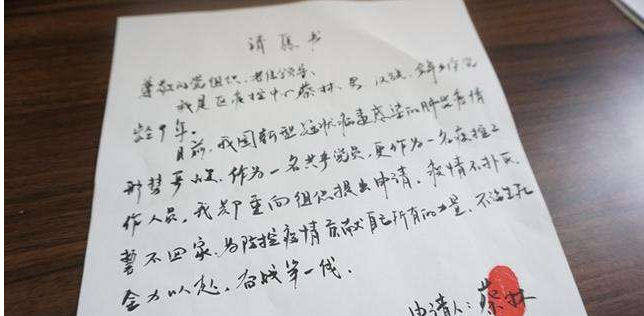 请愿书
尊敬的党组织、各位领导、
我是区疾控中心蔡林、男、汉族、
龄9年。
目前，我国新型冠状病毒感染的肺炎疫情
形势严峻，作为一名共产党员，更作为一名疾控工
作人员，我郑重向组织提出申请，疫情不扑灭
誓不回家，为防控疫情贡献自己所有的力量，不论生死
全力以赴，奋战第一线。
申请人：蔡林